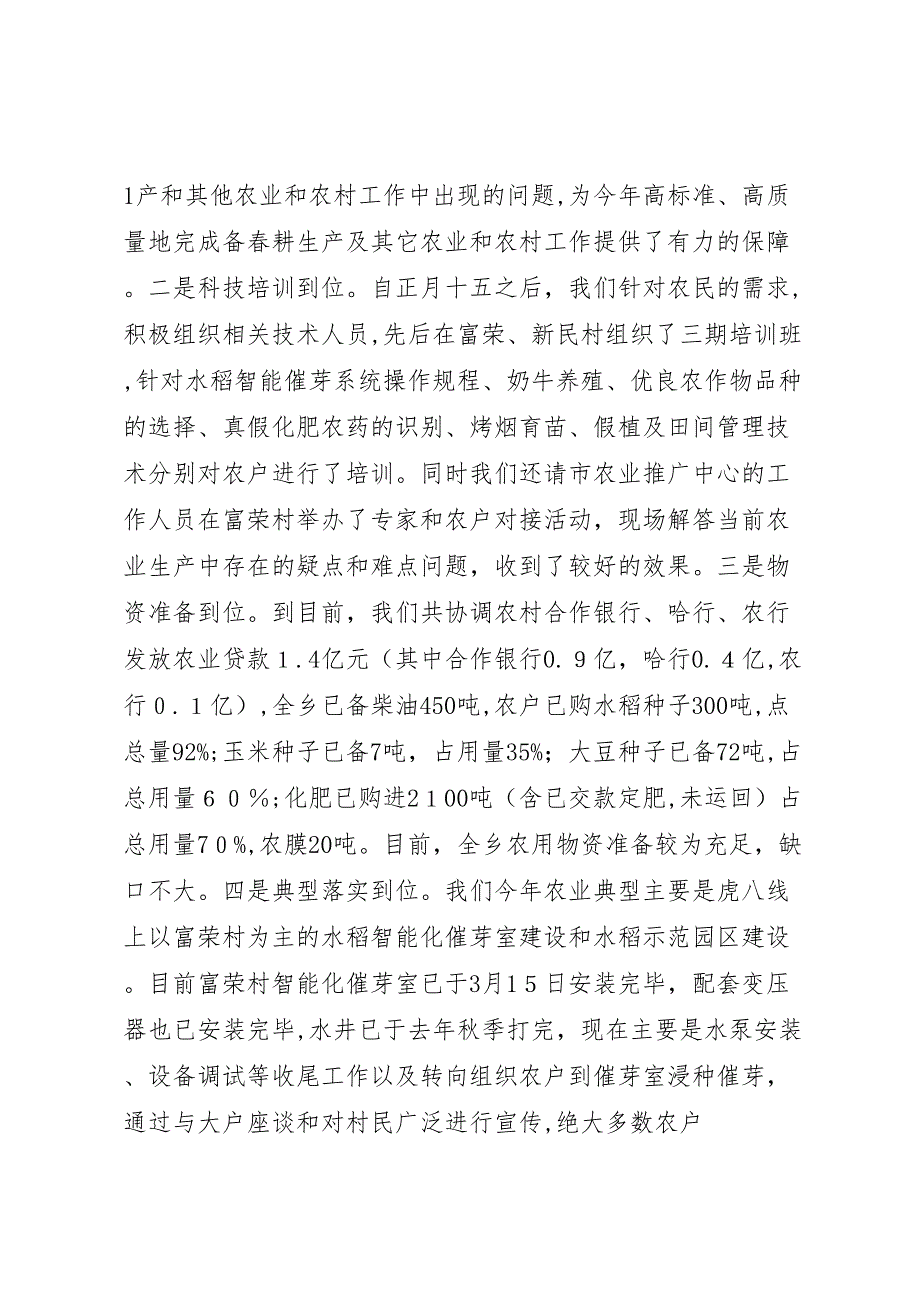 1产和其他农业和农村工作中出现的问题,为今年高标准、高质
量地完成备春耕生产及其它农业和农村工作提供了有力的保障
。二是科技培训到位。自正月十五之后，我们针对农民的需求,
积极组织相关技术人员,先后在富荣、新民村组织了三期培训班
,针对水稻智能催芽系统操作规程、奶牛养殖、优良农作物品种
的选择、真假化肥农药的识别、烤烟育苗、假植及田间管理技
术分别对农户进行了培训。同时我们还请市农业推广中心的工
作人员在富荣村举办了专家和农户对接活动，现场解答当前农
业生产中存在的疑点和难点问题，收到了较好的效果。三是物
资准备到位。到目前，我们共协调农村合作银行、哈行、农行
发放农业贷款１.4亿元（其中合作银行0.９亿，哈行0.４亿,农
行０.１亿）,全乡已备柴油450吨,农户已购水稻种子300吨,点
总量92%;玉米种子已备7吨，占用量35%；大豆种子已备72吨,占
总用量６０％;化肥已购进2１00吨（含已交款定肥,未运回）占
总用量7０%,农膜20吨。目前，全乡农用物资准备较为充足，缺
口不大。四是典型落实到位。我们今年农业典型主要是虎八线
上以富荣村为主的水稻智能化催芽室建设和水稻示范园区建设
。目前富荣村智能化催芽室已于3月1５日安装完毕，配套变压
器也已安装完毕,水井已于去年秋季打完，现在主要是水泵安装
、设备调试等收尾工作以及转向组织农户到催芽室浸种催芽，
通过与大户座谈和对村民广泛进行宣传,绝大多数农户